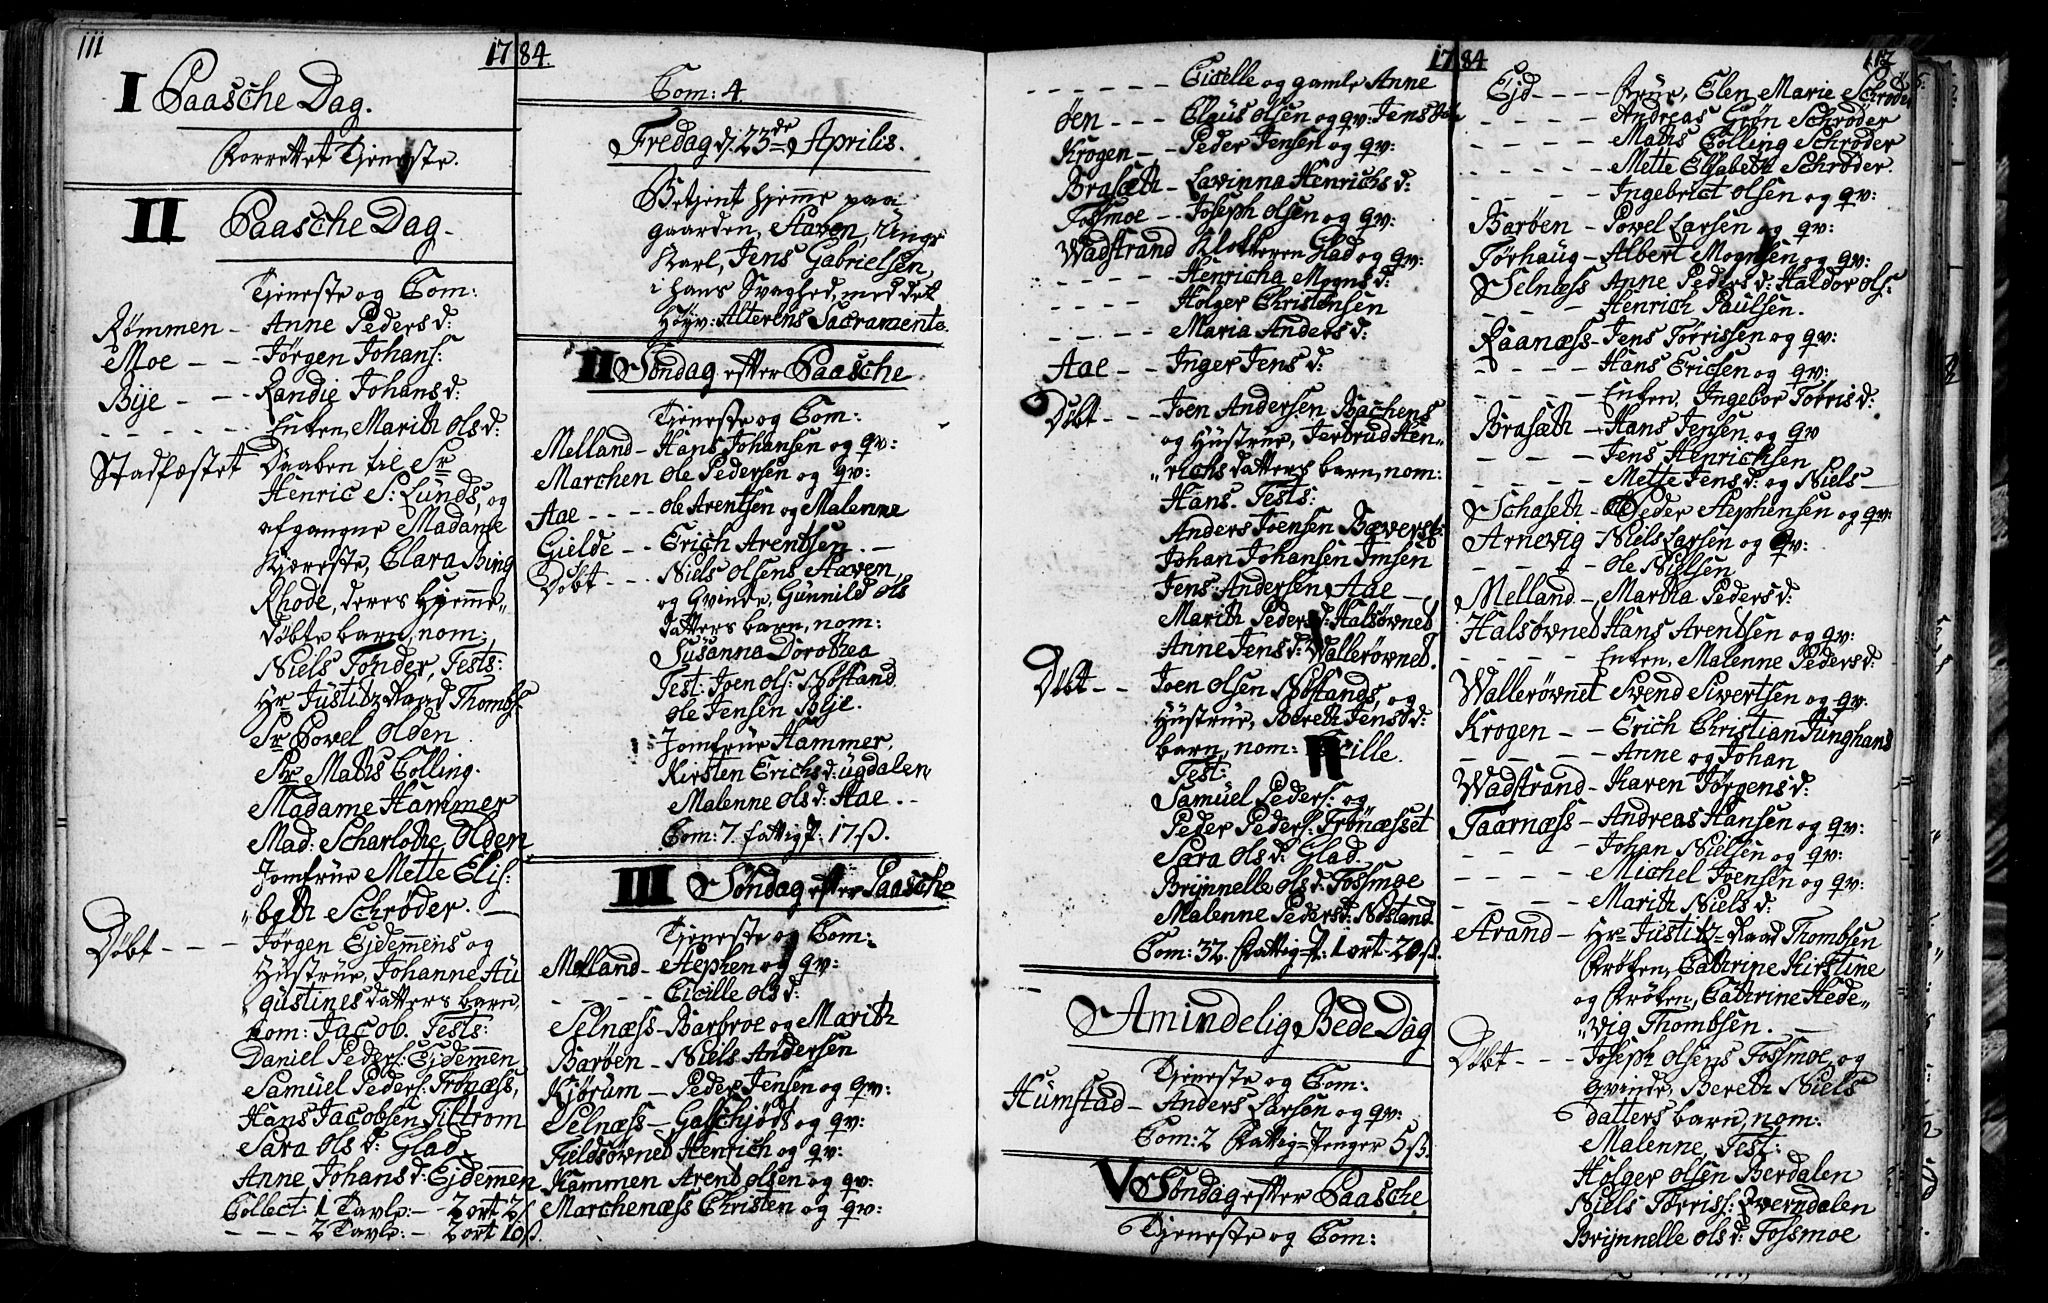 111
1784.
I Paasche Dag.
Forrettet Tjeneste.
II Paasche Dag.
Tjeneste og Com:
Rømmen - Anne Peders d:
Moe - - - Jørgen Johans:
Bije - - - Randie Johans d:
- - - - - Enken, Marith Ols d:
Stadfæstet Daaben til Sr
Henric S: Lunds, og
afgangne Madame
Kjæreste, Clara Bing
Rhode, deres Hjemme"
døbte barn, nom:
Niels Tonder, Tests:
Hr Justitz Raad Thombs:
Sr Povel Olden
Sr Maths Colling.
Madame Hammer
Mad: Scharlothe Olden
Jomfrue Mette Elis:
"beth Schrøder.
Døbt - - - Jørgen Ejdemmens og
Hustrue, Johanne Au
gustines datters barn,
nom: Jacob. Tests:
Daniel Peders: Ejdemmen
Samuel Peders: Trønæss,
Hans Jacobsen Tiltrom
Sara Ols d: Glad
Anne Johans d: Ejdemmen
Collect: 1 Tavle: - - 2 ort 2 ß
- - - 2 Tavle: - 2 ort 10 ß.
Com: 4.
Fredag d: 23de Aprilis.
Betjent hjemme paa
gaarden, Staven, Unge
Karl, Jens Gabrielsen,
i hans Svaghed, med det
Høyv: Alterens Sacramente.
II Søndag efter Paasche
Tjeneste og Com:
Melland - Hans Johansen og qv:
Marchen Ole Pedersen og qv:
Aae - - - - Ole Arentsen og Malenne
Gielde - - Erich Arentsen. -
Døbt - - - Niels Olsens Staven,
og Qvinde, Gunnild Ols
datters barn, nom:
Susanna Dorothea
Test: Joen Ols: Nøstand
Ole Jensen Bije.
Jomfrue Hammer,
Kirsten Erichs d: Ugdalen
Malenne Ols d: Aae. -
Com: 7. fattig P: 17 ß.
III Søndag efter Paasche
Tjeneste og Com:
Melland - Stephen og qv:
- - - - - Cicille Ols d:
Selnæss - Barbroe og Marith
Barøen - Niels Andersen
Kjørum - Peder Jensen og qv:
Selnæss - Gabschjødt og qv:
Fieldsøvned Henrich og qv:
Kammen Arent Olsen og qv:
Marchenæss Christen og qv:
1784
- - - - - - Cicelle og gamle Anne
Øen - - - Claus Olsen og qv: Jens
Krogen - - Peder Jensen og qv:
Brasæth - Lavinna Henrichs d:
Fossmoe - - Joseph Olsen og qv:
Wadstrand Klokkeren Glad og qv:
- - - - Henricha Mogns d:
- - - - Holger Christensen
- - - - Maria Anders d:
Aae - - Inger Jens d:
Døbt - - - Joen Andersen Bachens
og Hustrue, Jerbrud Hen"
"richs datters barn, nom:
Hans. Tests:
Anders Joensen Bæverst:
Johan Johansen Imsen
Jens Andersen Aae -
Marith Peders d: Halsøvned
Anne Jens d: Wallerøvned.
Døbt - - Joen Olsen Nøstands, og
Hustrue, Bereth Jens d:
barn, nom: Cicille.
Test:
Samuel Peders: og
Peder Peders: Trønæsset
Sara Ols d: Glad
Brynnelle Ols d: Fossmoe
Malenne Peders d: Nøstand
Com: 32. Fattig P: 1 ort - 20 ß.
Almindelig Bede Dag
Tjeneste og Com:
Humstad - Anders Larsøn og qv:
Com: 2 Fattig=Penger 5 ß.
V Søndag efter Paasche
Tjeneste og Com:
112
Ejd - - - - Frue, Elen Marie Schrøder
- - - - Andreas Grøn Schrøder
- - - - Maths Colling Schrøder
- - - - Mette Elisabeth Schrøder.
- - - - Ingebrict Olsen og qv:
Barøen - Povel Larsen og qv:
Førhaug - Albert Mognsen og qv:
Selnæss Anne Peders d: Haldor Ols:
- - - Henrich Paulsen.
Raanæss - Jens Tørrissen og qv:
- - - - Hans Ericsen og qv:
- - - - Enken, Ingebor Tørris d:
Brasæth - Hans Jensen og qv
- - - - Jens Henrichsen
- - - - Mette Jens d: og Niels -
Schaseth - Peder Stephensen og qv:
Arnevig Niels Larsen og qv:
- - - - Ole Nielsen
Melland - Martha Peders d:
Halsøvned Hans Arentsen og qv:
- - - - Enken, Malenne Peders d:
Wallerøvned Svend Sivertsen og qv:
Krogen - - Erich Christian Junghans
- - - - Anne og Johan
Wadstrand - Karen Jørgens d:
Taarnæss - Andreas Hansen og qv:
- - - - Johan Nielsen og qv:
- - - - Michel Joensen og qv:
- - - - Marith Niels d:
Strand - Hr Justitz=Raad Thombsen
Frøken, Cathrine Kirstine
og Frøken, Cathrine Hede"
"vig Thombsen. -
Døbt - - - Joseph Olsens Fossmoe, og
Qvinde, Bereth Niels
datters barn, nom:
Malenne, Test:
Holger Olsen Berdalen
Niels Tørriss: Qverndalen
Brynnelle Ols d: Fossmoe